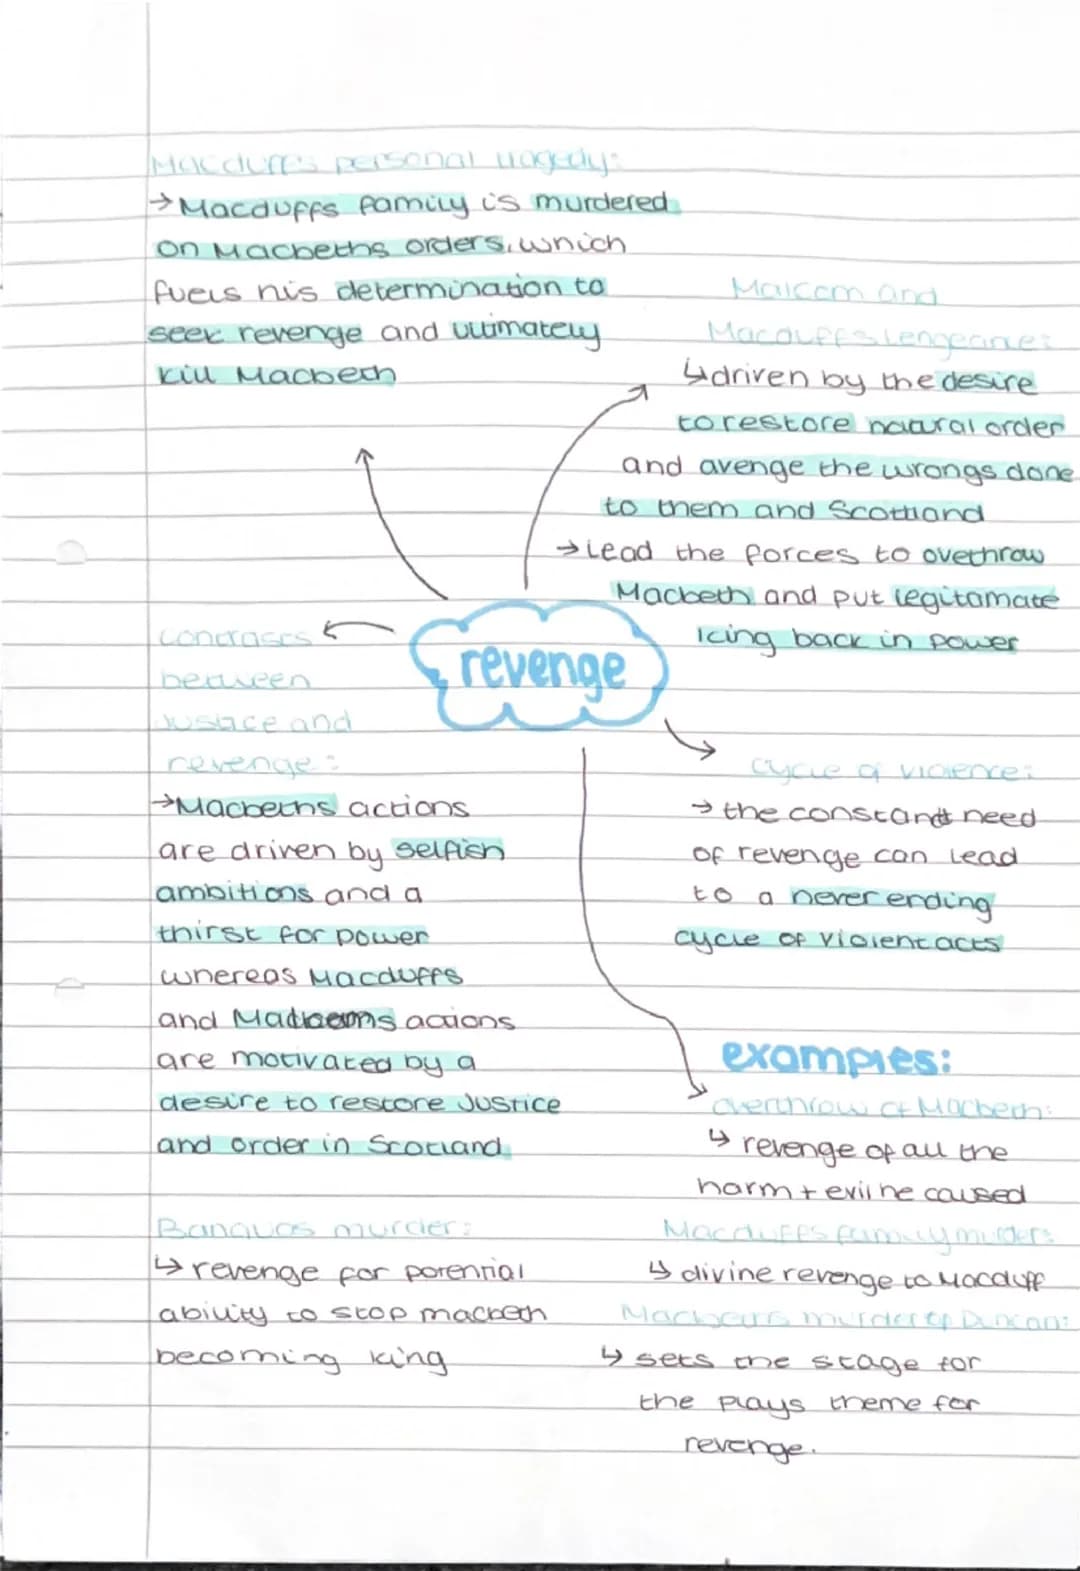 Macduffs personal tragedy:
→ Macduffs family is murdered
on Macbeths orders, which
fuels his determination to
seek revenge and ultimately
kill Macbeth
Malcom and
Macduffs vengeance:
↳ driven by the desire
to restore natural order
and avenge the wrongs done
to them and Scotland
→ Lead the forces to overthrow
Macbeth and put legitamate
king back in power
revenge
contrascs
between
justice and
revenge:
→ Macbeths actions
are driven by selfish
ambitions and a
thirst for power
whereas Macduffs
and actions
are motivated by a
desire to restore Justice
and order in Scotland
cycle of violence:
→ the constant need
of revenge can lead
to a never ending
cycle of violent acts
examples:
overthrow of Macbeth:
↳ revenge of all the
harm + evil he caused
Macduffs family murder:
↳ divine revenge to Macduff
Macbeths murder of Duncan:
↳ sets the stage for
the plays theme for
revenge.
Banquos murder:
↳ revenge for potential
ability to stop macbeth
becoming king